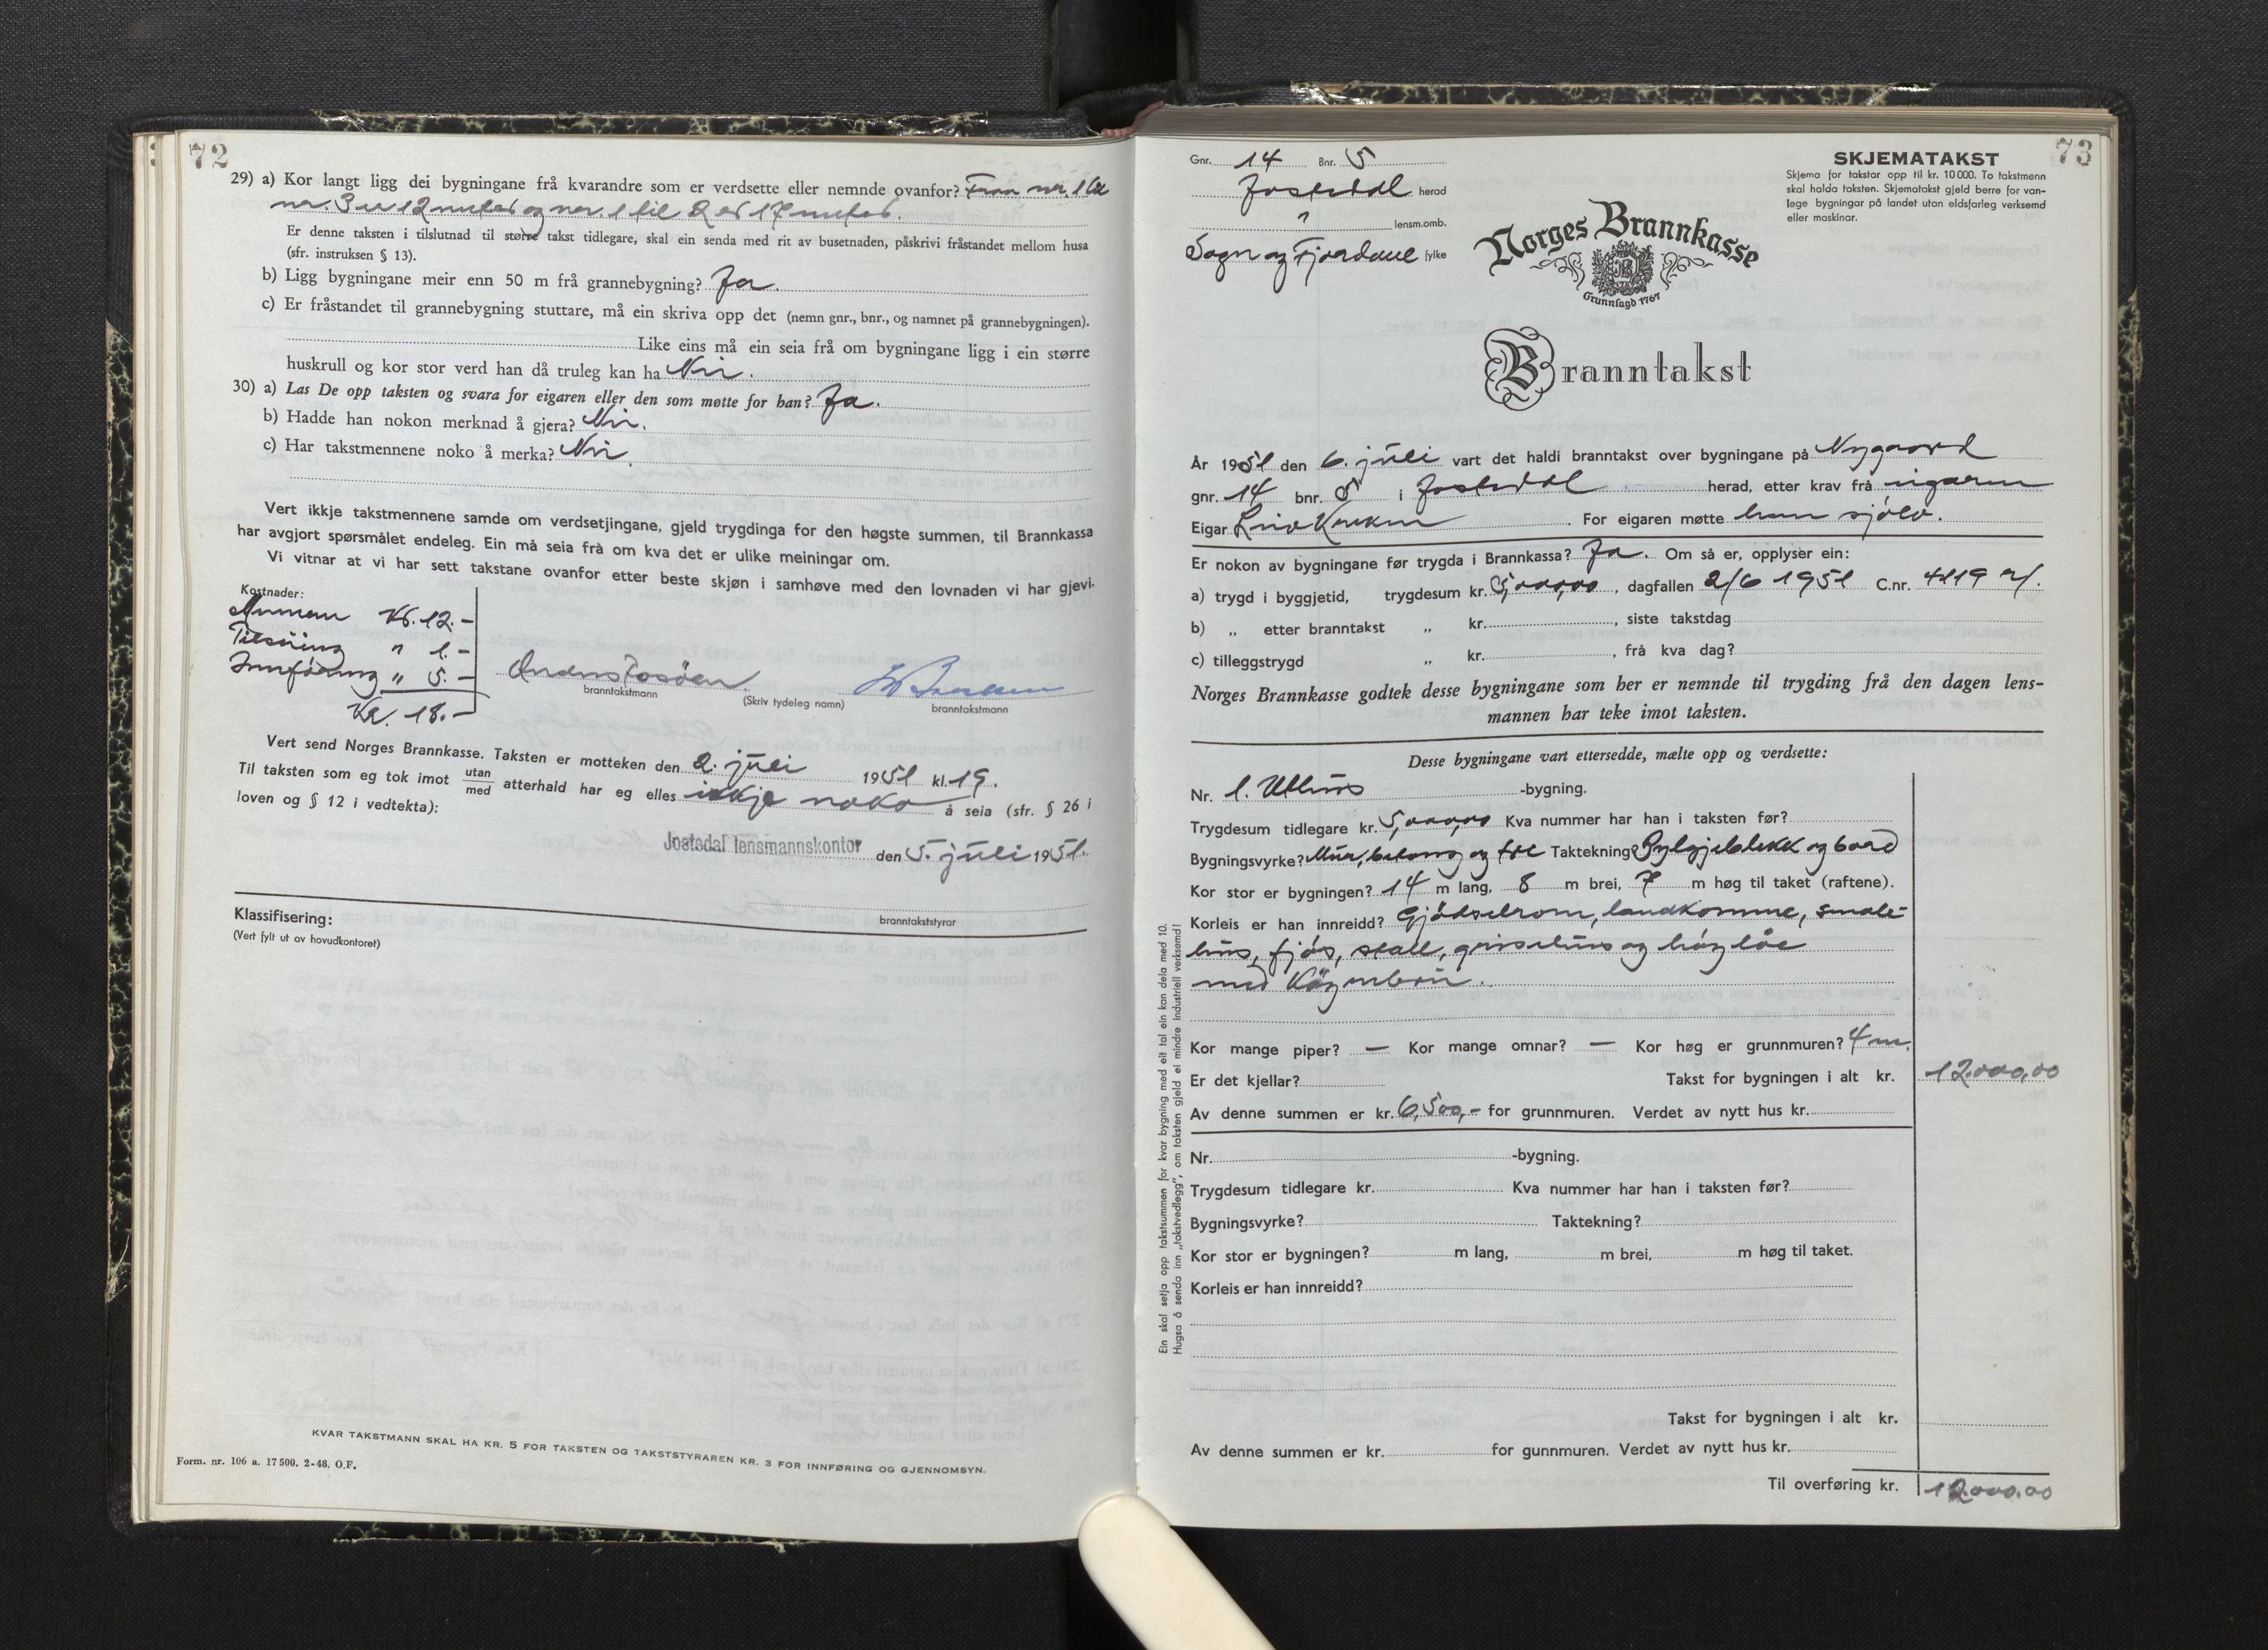 72
29) a) Kor langt ligg dei bygningane frå kvarandre som er verdsette eller nemnde ovanfor? Fraa nr. 1 til
nr. 3 er 12 meter og nr. 1 til 2 er 17 meter.
Er denne taksten i tilslutnad til større takst tidlegare, skal ein senda med rit av busetnaden, påskrivi fråstandet mellom husa
(sfr. instruksen § 13).
b) Ligg bygningane meir enn 50 m frå grannebygning? Ja.
c) Er fråstandet til grannebygning stuttare, må ein skriva opp det (nemn gnr., bnr., og namnet på grannebygningen).
Like eins må ein seia frå om bygningane ligg i ein større
huskrull og kor stor verd han då truleg kan ha Nei.
30) a) Las De opp taksten og svara for eigaren eller den som møtte for han? Ja.
b) Hadde han nokon merknad å gjera? Nei.
c) Har takstmennene noko å merka? Nei.
Vert ikkje takstmennene samde om verdsetjingane, gjeld trygdinga for den høgste summen, til Brannkassa
har avgjort spørsmålet endeleg. Ein må seia frå om kva det er ulike meiningar om.
Vi vitnar at vi har sett takstane ovanfor etter beste skjøn i samhøve med den lovnaden vi har gjevi.
Kostnader:
Kr. 12.-
" 1.-
Innføring " 5.-
Kr. 18.-
branntakstmann
(Skriv tydeleg namn)
branntakstmann
Vert send Norges Brannkasse. Taksten er motteken den 2. juli 1951 kl. 19.
Til taksten som eg tok imot utan/med atterhald har eg elles ikkje noko å seia (sfr. § 26 i
loven og § 12 i vedtekta):
Jostedal lensmannskontor den 5. juli 1951.
branntakststyrar
Klassifisering:
(Vert fylt ut av hovudkontoret)
KVAR TAKSTMANN SKAL HA KR. 5 FOR TAKSTEN OG TAKSTSTYRAREN KR. 3 FOR INNFØRING OG GJENNOMSYN.
Form. nr. 106 a. 17 500. 2-48. O.F.
73
Gnr. 14 Bnr. 5
Jostedal herad
" lensm.omb.
Sogn og Fjordane fylke
SKJEMATAKST
Skjema for takstar opp til kr. 10 000. To takstmenn
skal halda taksten. Skjematakst gjeld berre for van-
lege bygningar på landet utan eldsfarleg verksemd
eller maskinar.
Norges Brannkasse
Grunnlagd 1767
Branntakst
År 1951 den 6. juli vart det haldi branntakst over bygningane på Nygaard
gnr. 14 bnr. 5 i Jostedal herad, etter krav frå eigaren
Eigar For eigaren møtte han sjølv.
Er nokon av bygningane før trygda i Brannkassa? Ja. Om så er, opplyser ein:
a) trygd i byggjetid, trygdesum kr. 5,000,00, dagfallen 2/6 1951 C.nr. 4119
b) „ etter branntakst „ kr. , siste takstdag
c) tilleggstrygd „ kr. , frå kva dag?
Norges Brannkasse godtek desse bygningane som her er nemnde til trygding frå den dagen lens-
mannen har teke imot taksten.
Desse bygningane vart ettersedde, mælte opp og verdsette:
Nr. 1. Uthus -bygning.
Trygdesum tidlegare kr. 5,000,00 Kva nummer har han i taksten før?
Bygningsvyrke? Mur, betong og tre Taktekning? Bylgjeblekk og bord
Kor stor er bygningen? 14 m lang, 8 m brei, 7 m høg til taket (raftene).
Korleis er han innreidd? Gjødselrom, landkomme, smale-
hus, fjøs, stall, grisehus og høyløe
med
Kor mange piper? — Kor mange omnar? — Kor høg er grunnmuren? 4 m.
Er det kjellar? Takst for bygningen i alt kr. 12.000,00
Av denne summen er kr. 6,500,- for grunnmuren. Verdet av nytt hus kr.
Nr. -bygning.
Trygdesum tidlegare kr. Kva nummer har han i taksten før?
Bygningsvyrke? Taktekning?
Kor stor er bygningen? m lang, m brei, m høg til taket.
Korleis er han innreidd?
Takst for bygningen i alt kr.
Av denne summen er kr. for gunnmuren. Verdet av nytt hus kr.
Til overføring kr. 12.000,00
Ein skal setja opp takstsummen for kvar bygning med eit tal ein kan dela med 10.
Hugsa å senda inn „takstvedlegg", om taksten gjeld ei mindre industriell verksemd!